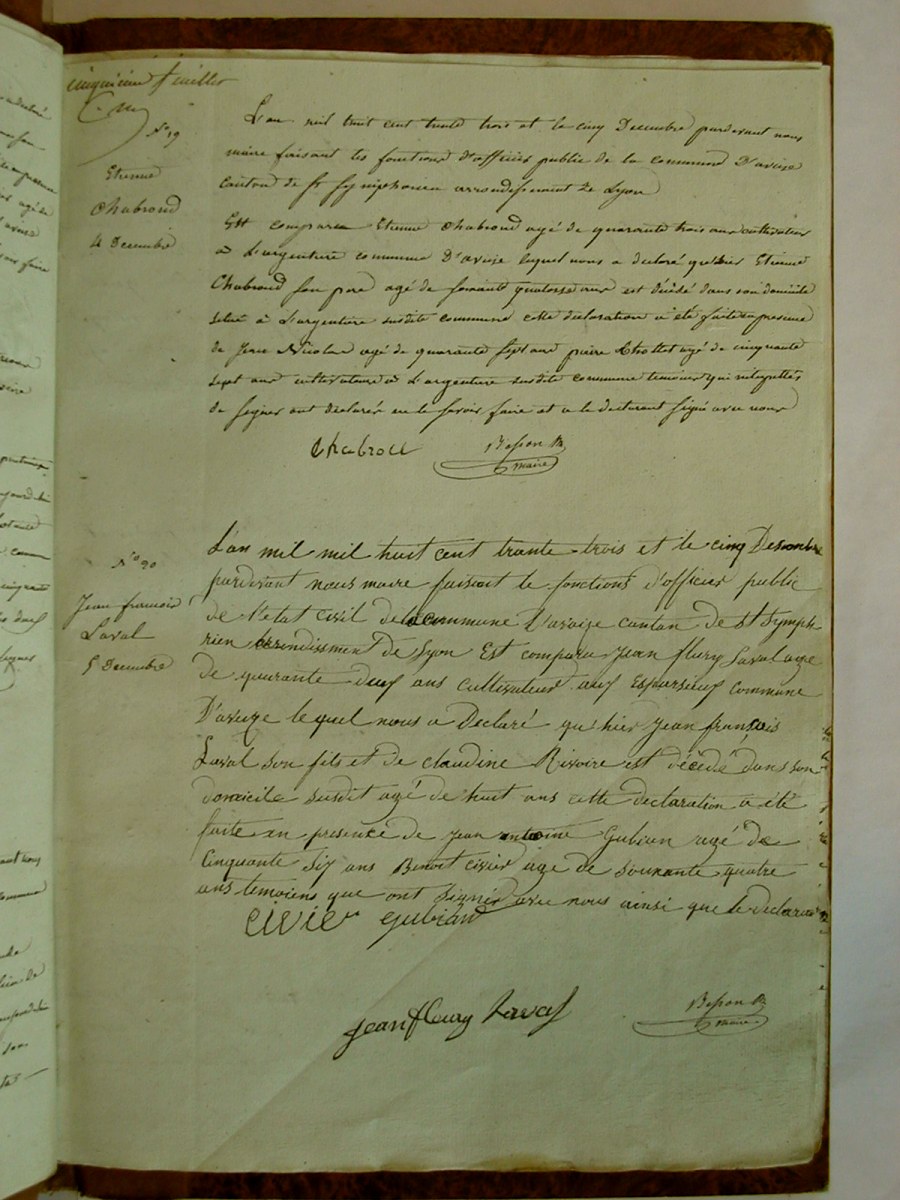 cinquième feuillet
N° 19
Etienne
Chabroud
4 Decembre
L'an mil huit cent trente trois et le cinq Decembre pardevant nous
maire faisant les fonctions d'officier public de la commune D'aveize
canton de St Symphorien arrondissement de Lyon
Est comparu Etienne Chabroud agé de quarante trois ans cultivateur
à L'argentiere commune D'aveize lequel nous a declaré qu'hier Etienne
Chabroud son pere agé de soixante quatorze ans est décédé dans son domicile
situé à L'argentiere susdite commune cette declaration a été faite en presence
de Jean Nicolas agé de quarante sept ans piere Chollet agé de cinquante
sept ans cultivateurs à L'argentiere susdite commune temoins qui interpellés
de signer ont declarés ne le savoir faire et a le declarant signé avec nous
Chabroud Besson
maire
N° 20
Jean francois
Laval
5 Decembre
L'an mil mil huit cent trante trois et le cinq Desembre
pardevant nous maire faisoit le fonctions d'officier public
de l'etat civil de la commune D'avaize cantan de St Sympho
rien arendissement de Lyon Est compara Jean flury Laval age
de quarante deuf ans cultivateur auf commune
D'aveze le quel nous a Declaré qu'hier Jean francois
Laval son fils et de claudine Rivoire est décédé dans son
domicile susdit agé de huit ans cette declaration a été
faite en presence de Jean antoine Gubian agé de
Cinquante Six ans Benoit civier age de souxante quatre
ans temoiens que ont signés avec nous ainsi que le declarant
civier gubian
jean fleury Laval
Besson
maire